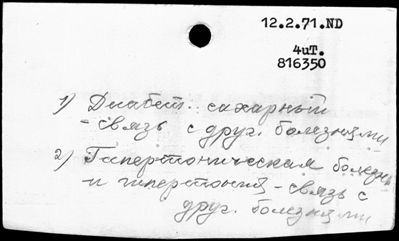 12.2.71.ND
4uT.
816350
1) Диабет сахарный
- связь с друг. болезнями
2) Гипертоническая болезнь
и гипертония - связь с
друг. болезнями